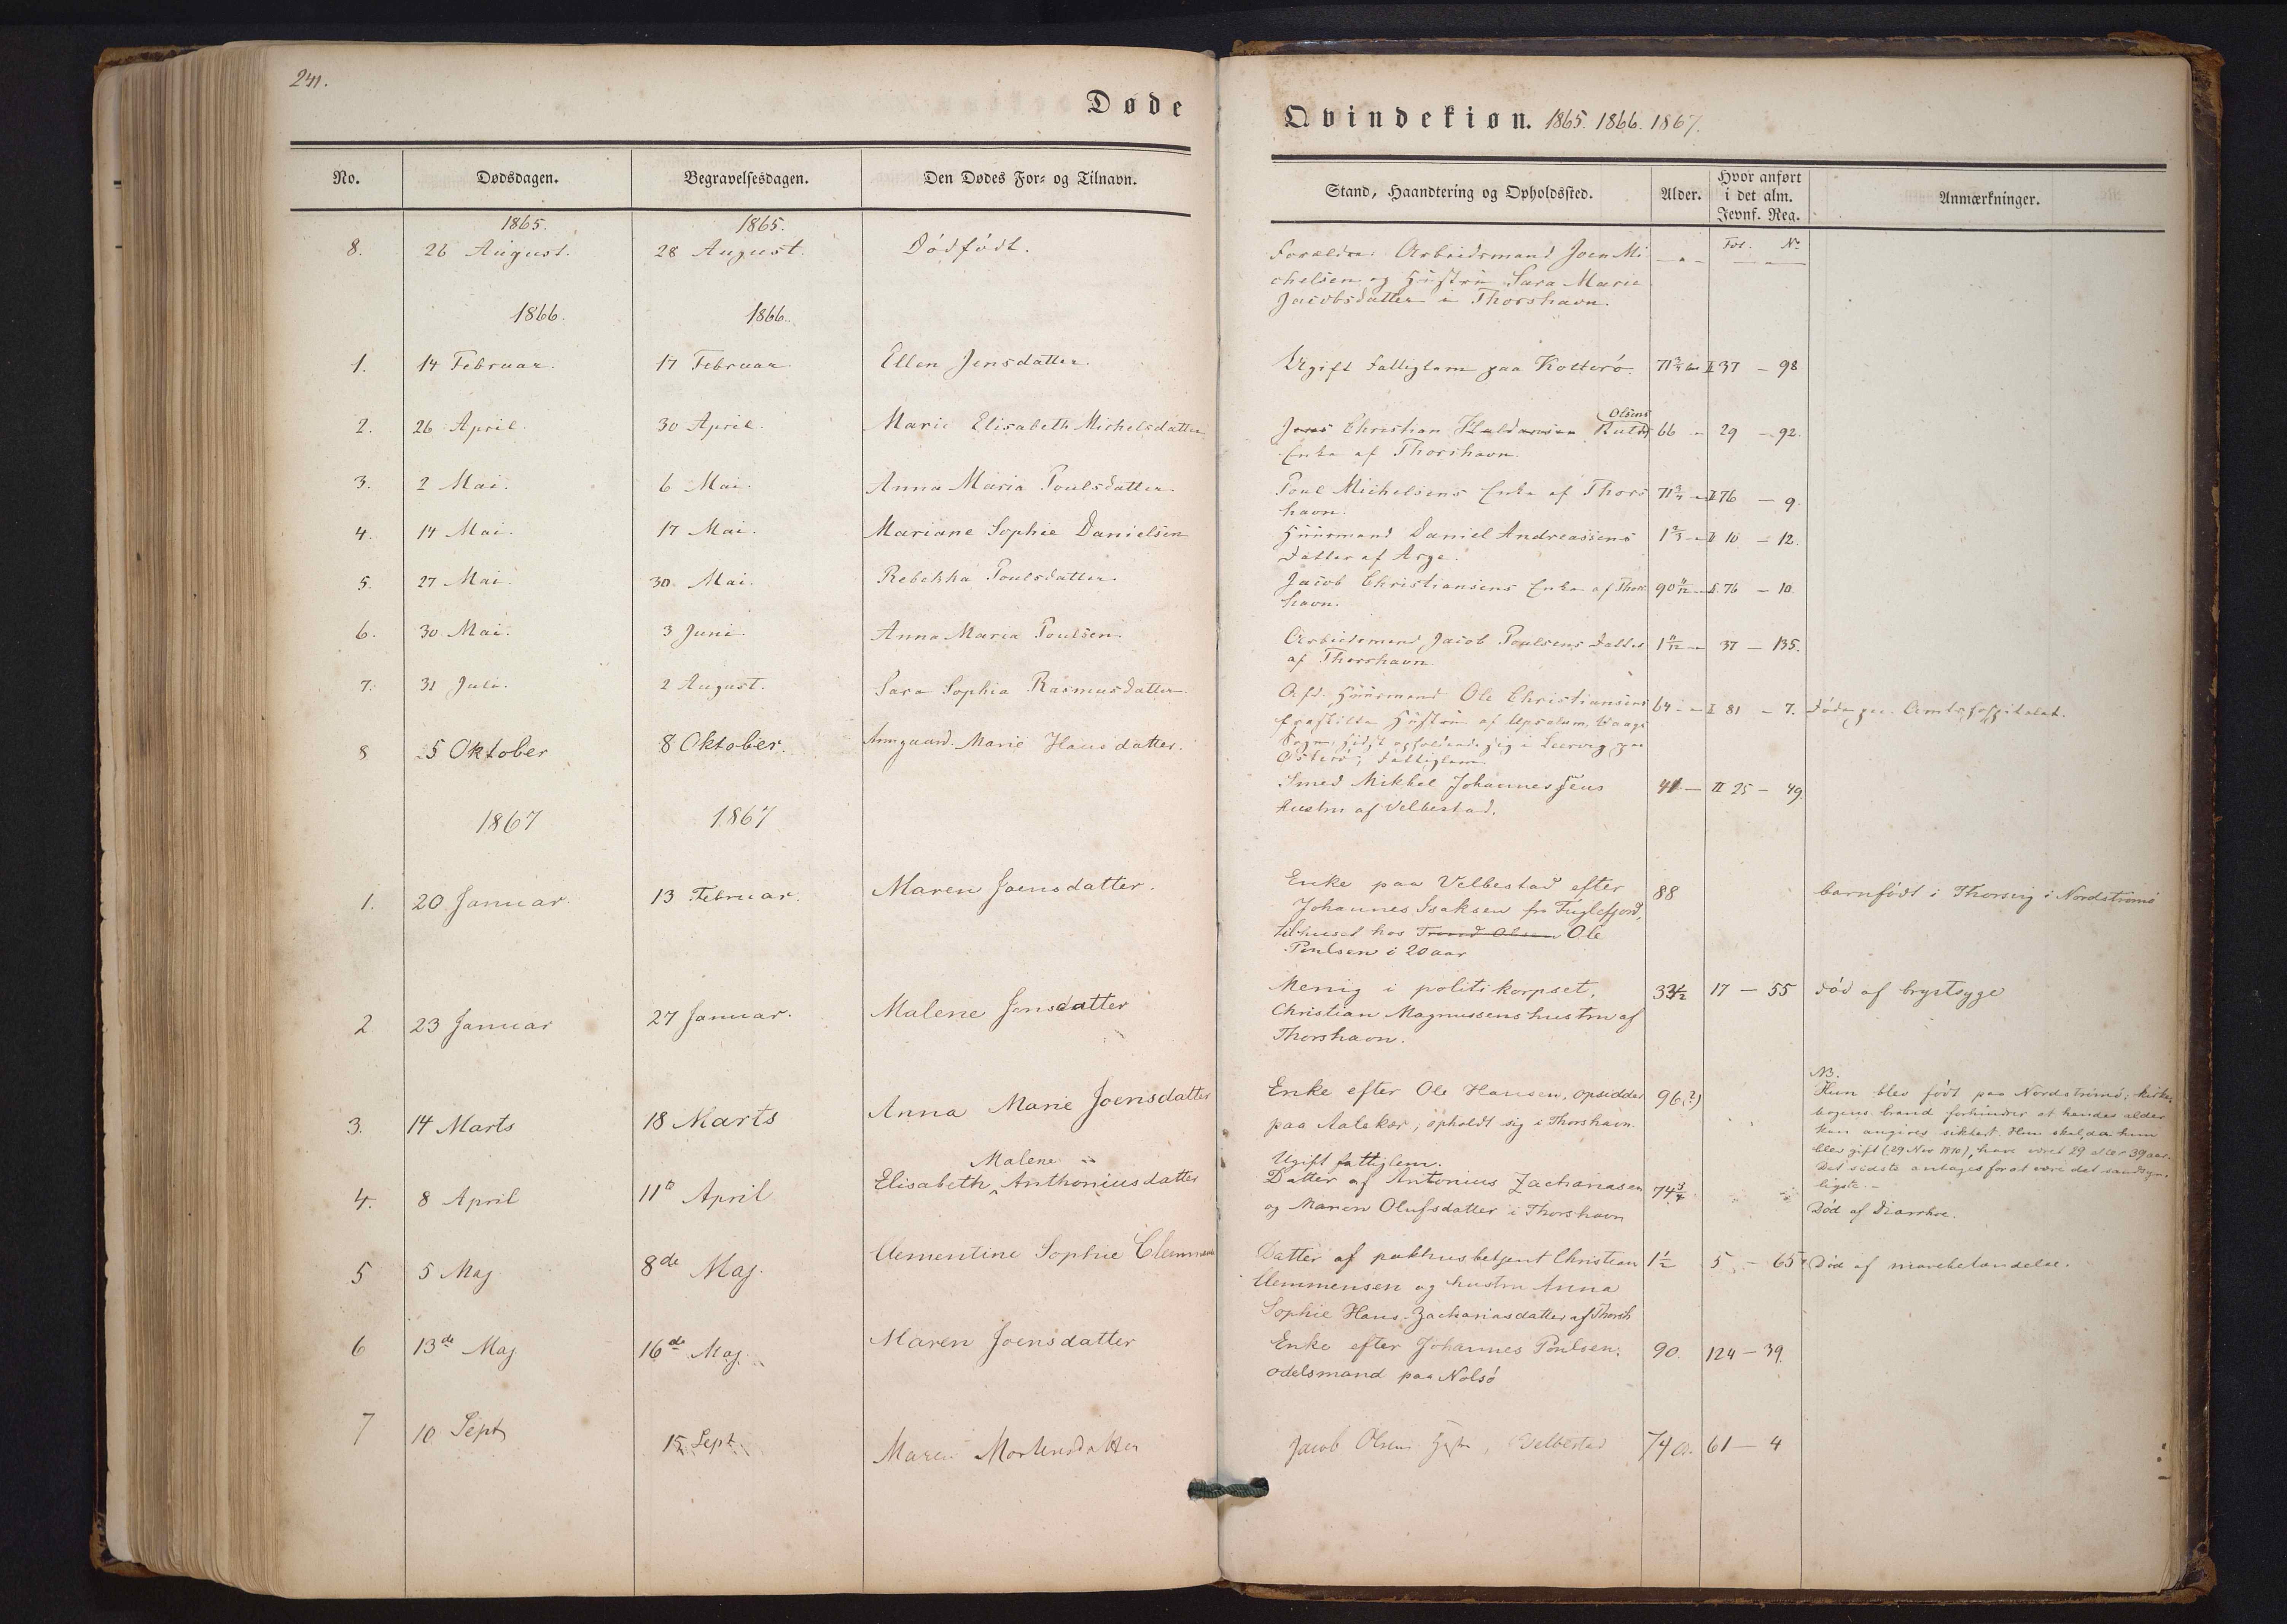 241.
Døde
Qvindekiøn. 1865. 1866. 1867.
No.
Dødsdagen.
Begravelsesdagen.
Den Dødes For- og Tilnavn.
Stand, Haandtering og Opholdssted.
Alder.
Hvor anført
i det alm.
Jevnf. Reg.
Anmærkninger.
1865.
1865.
Fol. No
8.
26 August.
28 August.
Dødfødt.
Forældre: Arbeidsmand Joen Mi
chelsen og Hustru Sara Marie
Jacobsdatter i Thorshavn.
1866.
1866.
1.
14 Februar.
17 Februar.
Ellen Jensdatter.
Ugift Fattiglem paa Kolterø.
71 3/4
II 37 – 98
2.
26 April.
30 April.
Marie Elisabeth Michelsdatter
Olsens
Jens Christian
Enke af Thorshavn.
66
29 – 92.
3.
2 Mai.
6 Mai.
Anna Maria Poulsdatter
Poul Michelsens Enke af Thors
havn.
71 3/4
I 76 – 9.
4.
14 Mai.
17 Mai.
Mariane Sophie Danielsen
Huusmand Daniel Andreassens
Datter af Arge.
1 2/3
II 10 – 12.
5.
27 Mai.
30 Mai.
Rebekka Poulsdatter.
Jacob Christiansens Enke af Thors
havn.
90
I 76 – 10.
6.
30 Mai.
3 Juni.
Anna Maria Poulsen.
Arbeidsmand Jacob Poulsens Datter
af Thorshavn.
1
37 – 135.
7.
31 Juli.
2 August.
Sara Sophia Rasmusdatter.
Afd. Huusmand Ole Christiansens
fraskilte Hustru af Vaags
Sogn, sidst opholdende sig i Leervig paa
Østerø; Fattiglem.
64
I 81 – 7.
Døde paa Amtshospitalet.
8
5 Oktober
8 Oktober.
Armgaard Marie Hansdatter.
Smed Mikkel Johannessens
hustru af Velbestad.
41 –
II 25 – 49.
1867
1867
1.
20 Januar.
13 Februar.
Maren Joensdatter.
Enke paa Velbestad efter
Johannes Isaksen fra Fuglefjord,
tilhuset hos Trond Olsen Ole
Poulsen i 20 aar
88
barnfødt i Thorsvig i Nordstrømø
2
23 Januar
27 Januar.
Malene Jensdatter
Menig i politikorpset,
Christian Magnussens hustru af
Thorshavn.
17 – 55
død af brystsyge
3.
14 Marts
18 Marts
Anna Marie Joensdatter
Enke efter Ole Hansen, opsidder
paa Aalekær, opholdt sig i Thorshavn.
96(?)
NB.
Hun blev født paa Nordstrømø; kirke-
bogens brand forhindrer at hendes alder
kan angives sikkert. Hun skal, da hun
blev gift (29 Nov 1810), have været 29 eller 39 aar.
Det sidste antages for at være det sandsyn-
ligste. –
4.
8 April
11te April
Malene
Elisabeth Anthoniusdatter
Ugift fattiglem.
Datter af Antonius Zachariasen
og Maren Olufsdatter i Thorshavn
74 3/4
Død af diarrhoe.
5
5 Maj
8de Maj.
Clementine Sophie
Datter af pakhusbetjent Christian
Clemmensen og hustru Anna
Sophie Hans-Zachariasdatter af Thorsh
1 1/2
5 – 65
Død af mavebetændelse.
6
13de Maj
16de Maj.
Maren Joensdatter
Enke efter Johannes Poulsen,
odelsmand paa Nolsø
90.
124 – 39.
7
10 Sept
15 Sept.
Maren Mortensdatter
Jacob Olsens Hustru, Velbestad
74
61 – 4